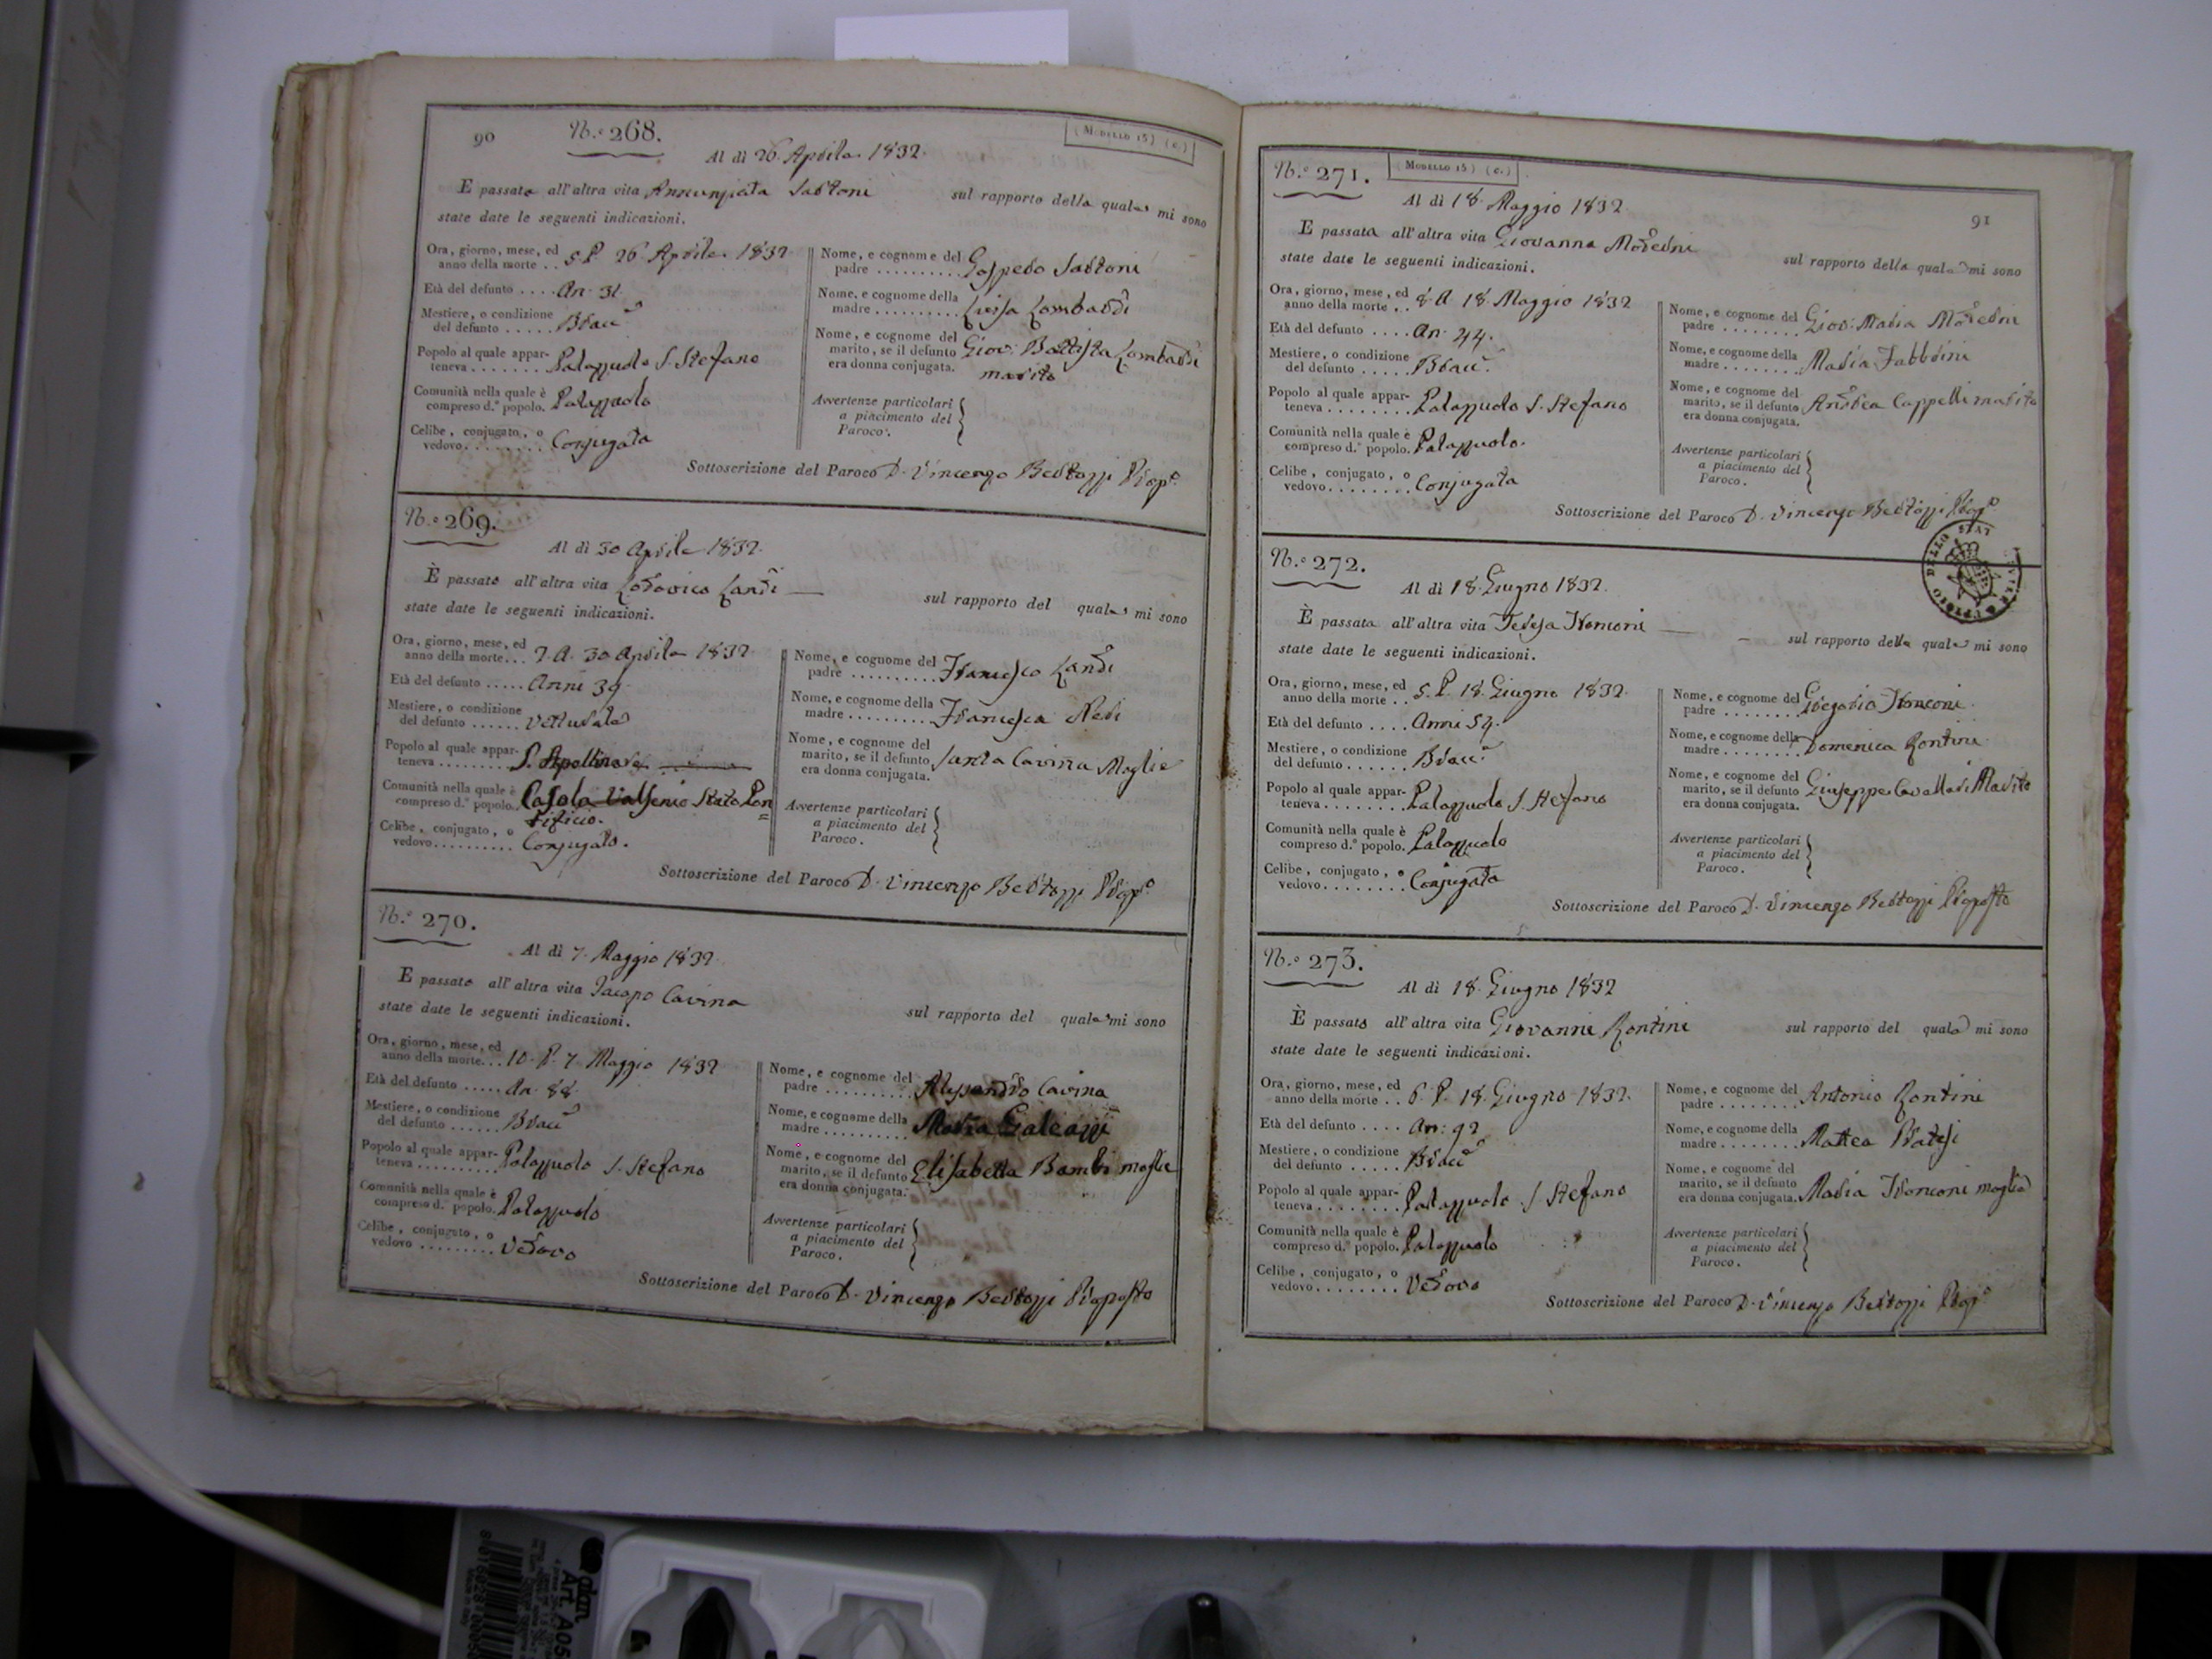 90
N.° 268.
(Modello 15) (c.)
Al dì 26. Aprile. 1832.
È passata all'altra vita Annunziata Sartoni sul rapporto della quale mi sono
state date le seguenti indicazioni.
Ora, giorno, mese, ed
anno della morte .. 5. P. 26 Aprile. 1832.
Età del defunto .... An. 31.
Mestiere, o condizione
del defunto ...... Bracc.e
Popolo al quale appar-
teneva ....... Palazzuolo S. Stefano
Comunità nella quale è
compreso d.° popolo. Palazzuolo
Celibe, conjugato, o
vedovo. ....... Conjugata
Nome, e cognome del
padre .......... Gaspero Sartoni
Nome, e cognome della
madre .......... Luisa Lombardi
Nome, e cognome del
marito, se il defunto Giov: Battista Lombardi
era donna conjugata. marito
Avvertenze particolari
a piacimento del
Paroco.
Sottoscrizione del Paroco D. Vincenzo Bertozzi Prop.°
N.° 269.
Al dì 30 Aprile 1832.
È passato all'altra vita Lodovico Landi sul rapporto del quale mi sono
state date le seguenti indicazioni.
Ora, giorno, mese, ed
anno della morte... 7. A. 30 Aprile 1832.
Età del defunto ..... Anni 39.
Mestiere, o condizione
del defunto ...... Vetturale
Popolo al quale appar-
teneva ......... S. Apollinare
Comunità nella quale è
compreso d.° popolo. Casola Valsenio Stato Pon
tificio.
Celibe, conjugato, o
vedovo.......... Conjugato.
Nome, e cognome del
padre .......... Francesco Landi
Nome, e cognome della
madre .......... Francesca Neri
Nome, e cognome del
marito, se il defunto Santa Cavina Moglie
era donna conjugata.
Avvertenze particolari
a piacimento del
Paroco.
Sottoscrizione del Paroco D. Vincenzo Bertozzi Prop.°
N.° 270.
Al dì 7. Maggio 1832.
È passato all'altra vita Jacopo Cavina sul rapporto del quale mi sono
state date le seguenti indicazioni.
Ora, giorno, mese, ed
anno della morte... 10. P. 7. Maggio 1832
Età del defunto ..... An. 88.
Mestiere, o condizione
del defunto ...... Bracc.e
Popolo al quale appar-
teneva .......... Palazzuolo S. Stefano
Comunità nella quale è
compreso d. popolo. Palazzuolo
Celibe, conjugato, o
vedovo ......... Vedovo
Nome, e cognome del
padre .......... Alessandro Cavina
Nome, e cognome della
madre .......... Maria Galeazzi
Nome, e cognome del
marito, se il defunto Elisabetta Bambi moglie
era donna conjugata.
Avvertenze particolari
a piacimento del
Paroco.
Sottoscrizione del Paroco D. Vincenzo Bertozzi Proposto
N.° 271.
(Modello 15) (c.)
91
Al dì 18. Maggio 1832
È passata all'altra vita Giovanna Moderni sul rapporto della quale mi sono
state date le seguenti indicazioni.
Ora, giorno, mese, ed
anno della morte .. 8. A. 18. Maggio 1832
Età del defunto .... An. 44.
Mestiere, o condizione
del defunto ..... Bracc.e
Popolo al quale appar-
teneva ........ Palazzuolo S. Stefano
Comunità nella quale è
compreso d.° popolo. Palazzuolo.
Celibe, conjugato, o
vedovo........ Conjugata
Nome, e cognome del
padre ........ Giov: Maria Moderni
Nome, e cognome della
madre ........ Maria Fabbrini
Nome, e cognome del
marito, se il defunto Andrea Cappelli marito
era donna conjugata.
Avvertenze particolari
a piacimento del
Paroco.
Sottoscrizione del Paroco D. Vincenzo Bertozzi Prop.°
N.° 272.
Al dì 18. Giugno 1832.
È passata all'altra vita Teresa Franconi sul rapporto della quale mi sono
state date le seguenti indicazioni.
Ora, giorno, mese, ed
anno della morte .. 5. P. 18. Giugno 1832.
Età del defunto .... Anni 54.
Mestiere, o condizione
del defunto ...... Bracc.e
Popolo al quale appar-
teneva ........ Palazzuolo S. Stefano
Comunità nella quale è
compreso d.° popolo. Palazzuolo
Celibe, conjugato, o
vedovo........ Conjugata
Nome, e cognome del
padre ........ Gregorio Franconi.
Nome, e cognome della
madre ........ Domenica Rontini
Nome, e cognome del
marito, se il defunto Giuseppe Cavallari Marito
era donna conjugata.
Avvertenze particolari
a piacimento del
Paroco.
Sottoscrizione del Paroco D. Vincenzo Bertozzi Proposto
N.° 273.
Al dì 18. Giugno 1832
È passato all'altra vita Giovanni Rontini sul rapporto del quale mi sono
state date le seguenti indicazioni.
Ora, giorno, mese, ed
anno della morte .. 6. P. 18. Giugno 1832.
Età del defunto .... An: 92
Mestiere, o condizione
del defunto ..... Bracc.e
Popolo al quale appar-
teneva ........ Palazzuolo S. Stefano
Comunità nella quale è
compreso d.° popolo. Palazzuolo
Celibe, conjugato, o
vedovo........ Vedovo
Nome, e cognome del
padre ........ Antonio Rontini
Nome, e cognome della
madre ........ Mattea
Nome, e cognome del
marito, se il defunto
era donna conjugata. Maria Franconi moglie
Avvertenze particolari
a piacimento del
Paroco.
Sottoscrizione del Paroco D. Vincenzo Bertozzi Prop.°
Art. A05